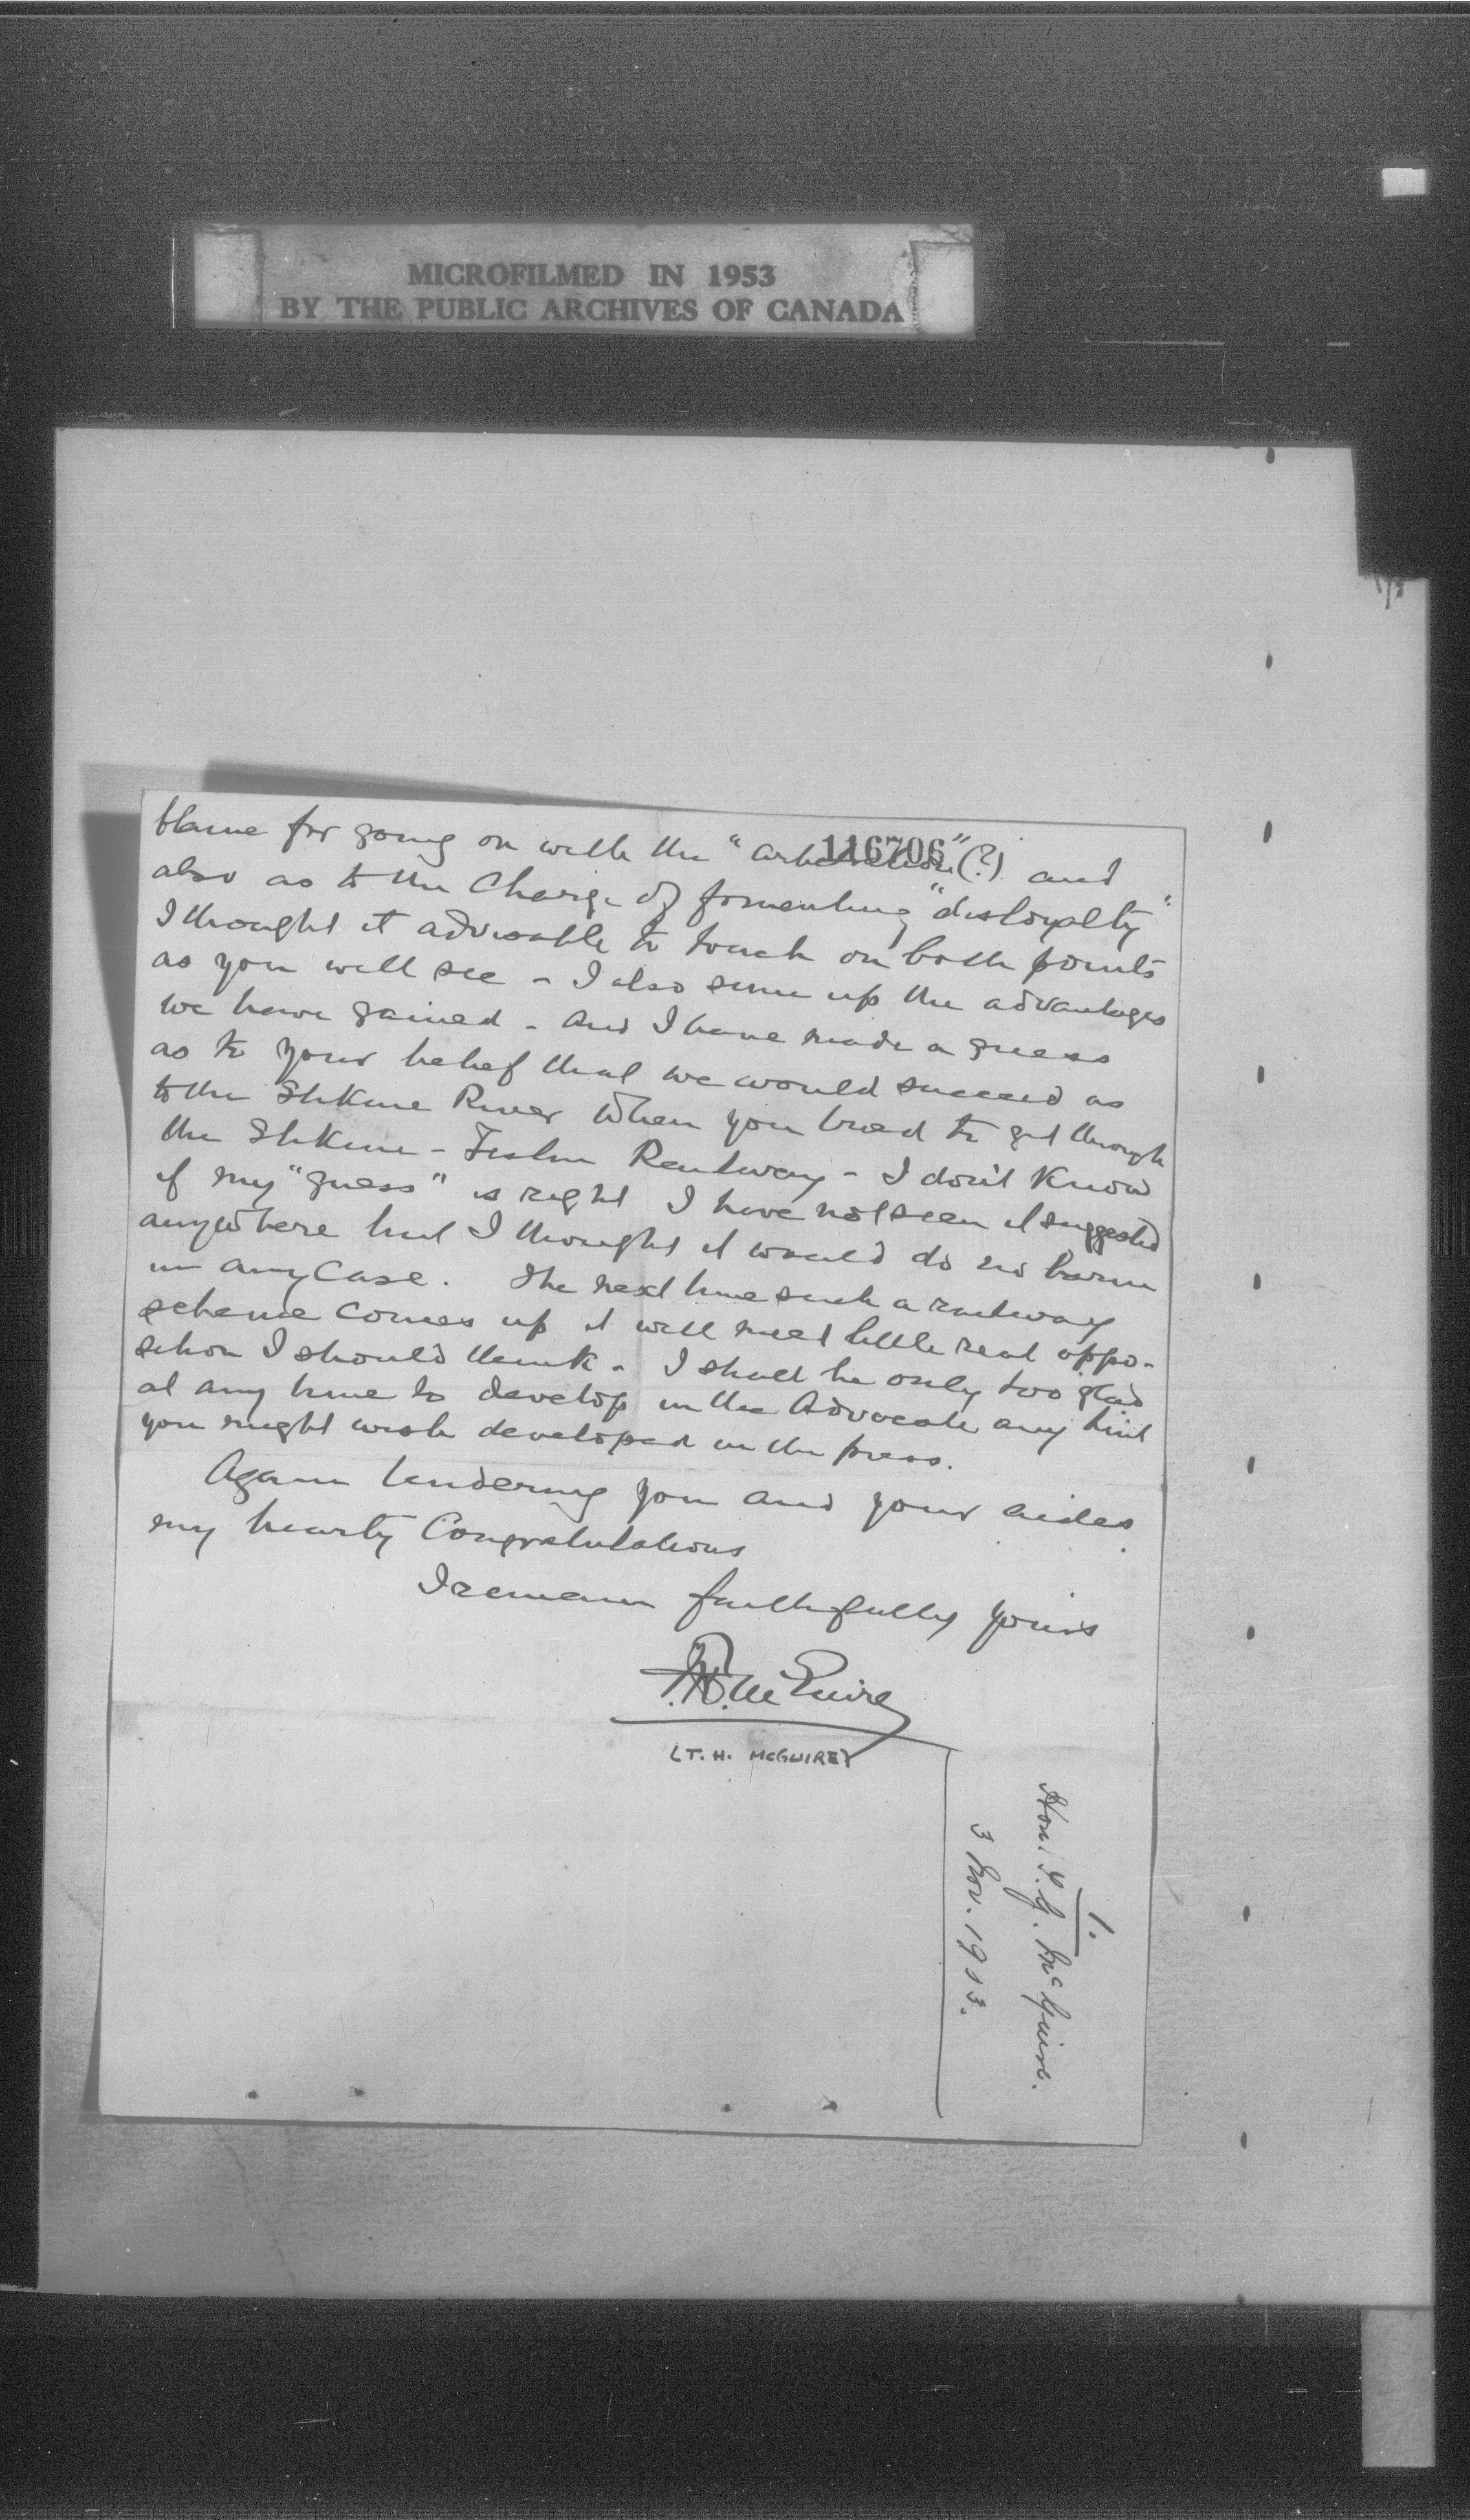 MICROFILMED IN 1953
BY THE PUBLIC ARCHIVES OF CANADA
116706
blame for going on with the "arbitration"(?) and
also as to the Charge of fomenting "disloyalty"
I thought it advisable to touch on both points
as you will see - I also sum up the advantages
we have gained - and I have made a guess
as to your belief that we would succeed as
to the Stikine River when you tried to get through
the Stikine - Teslin Railway - I don't know
if my "guess" is right I have not seen it suggested
anywhere but I thought it would do no harm
in any case. The next time such a railway
scheme comes up it will meet little real oppo-
sition I should think - I shall be only too glad
at any time to develop in the Advocate any hint
you might wish developed in the press.
Again tendering you and your aides
my hearty Congratulations
I remain faithfully yours
T.H. McGuire
(T. H. McGUIRE)
1.
Hon. T. G. McGuire.
3 Nov. 1903.